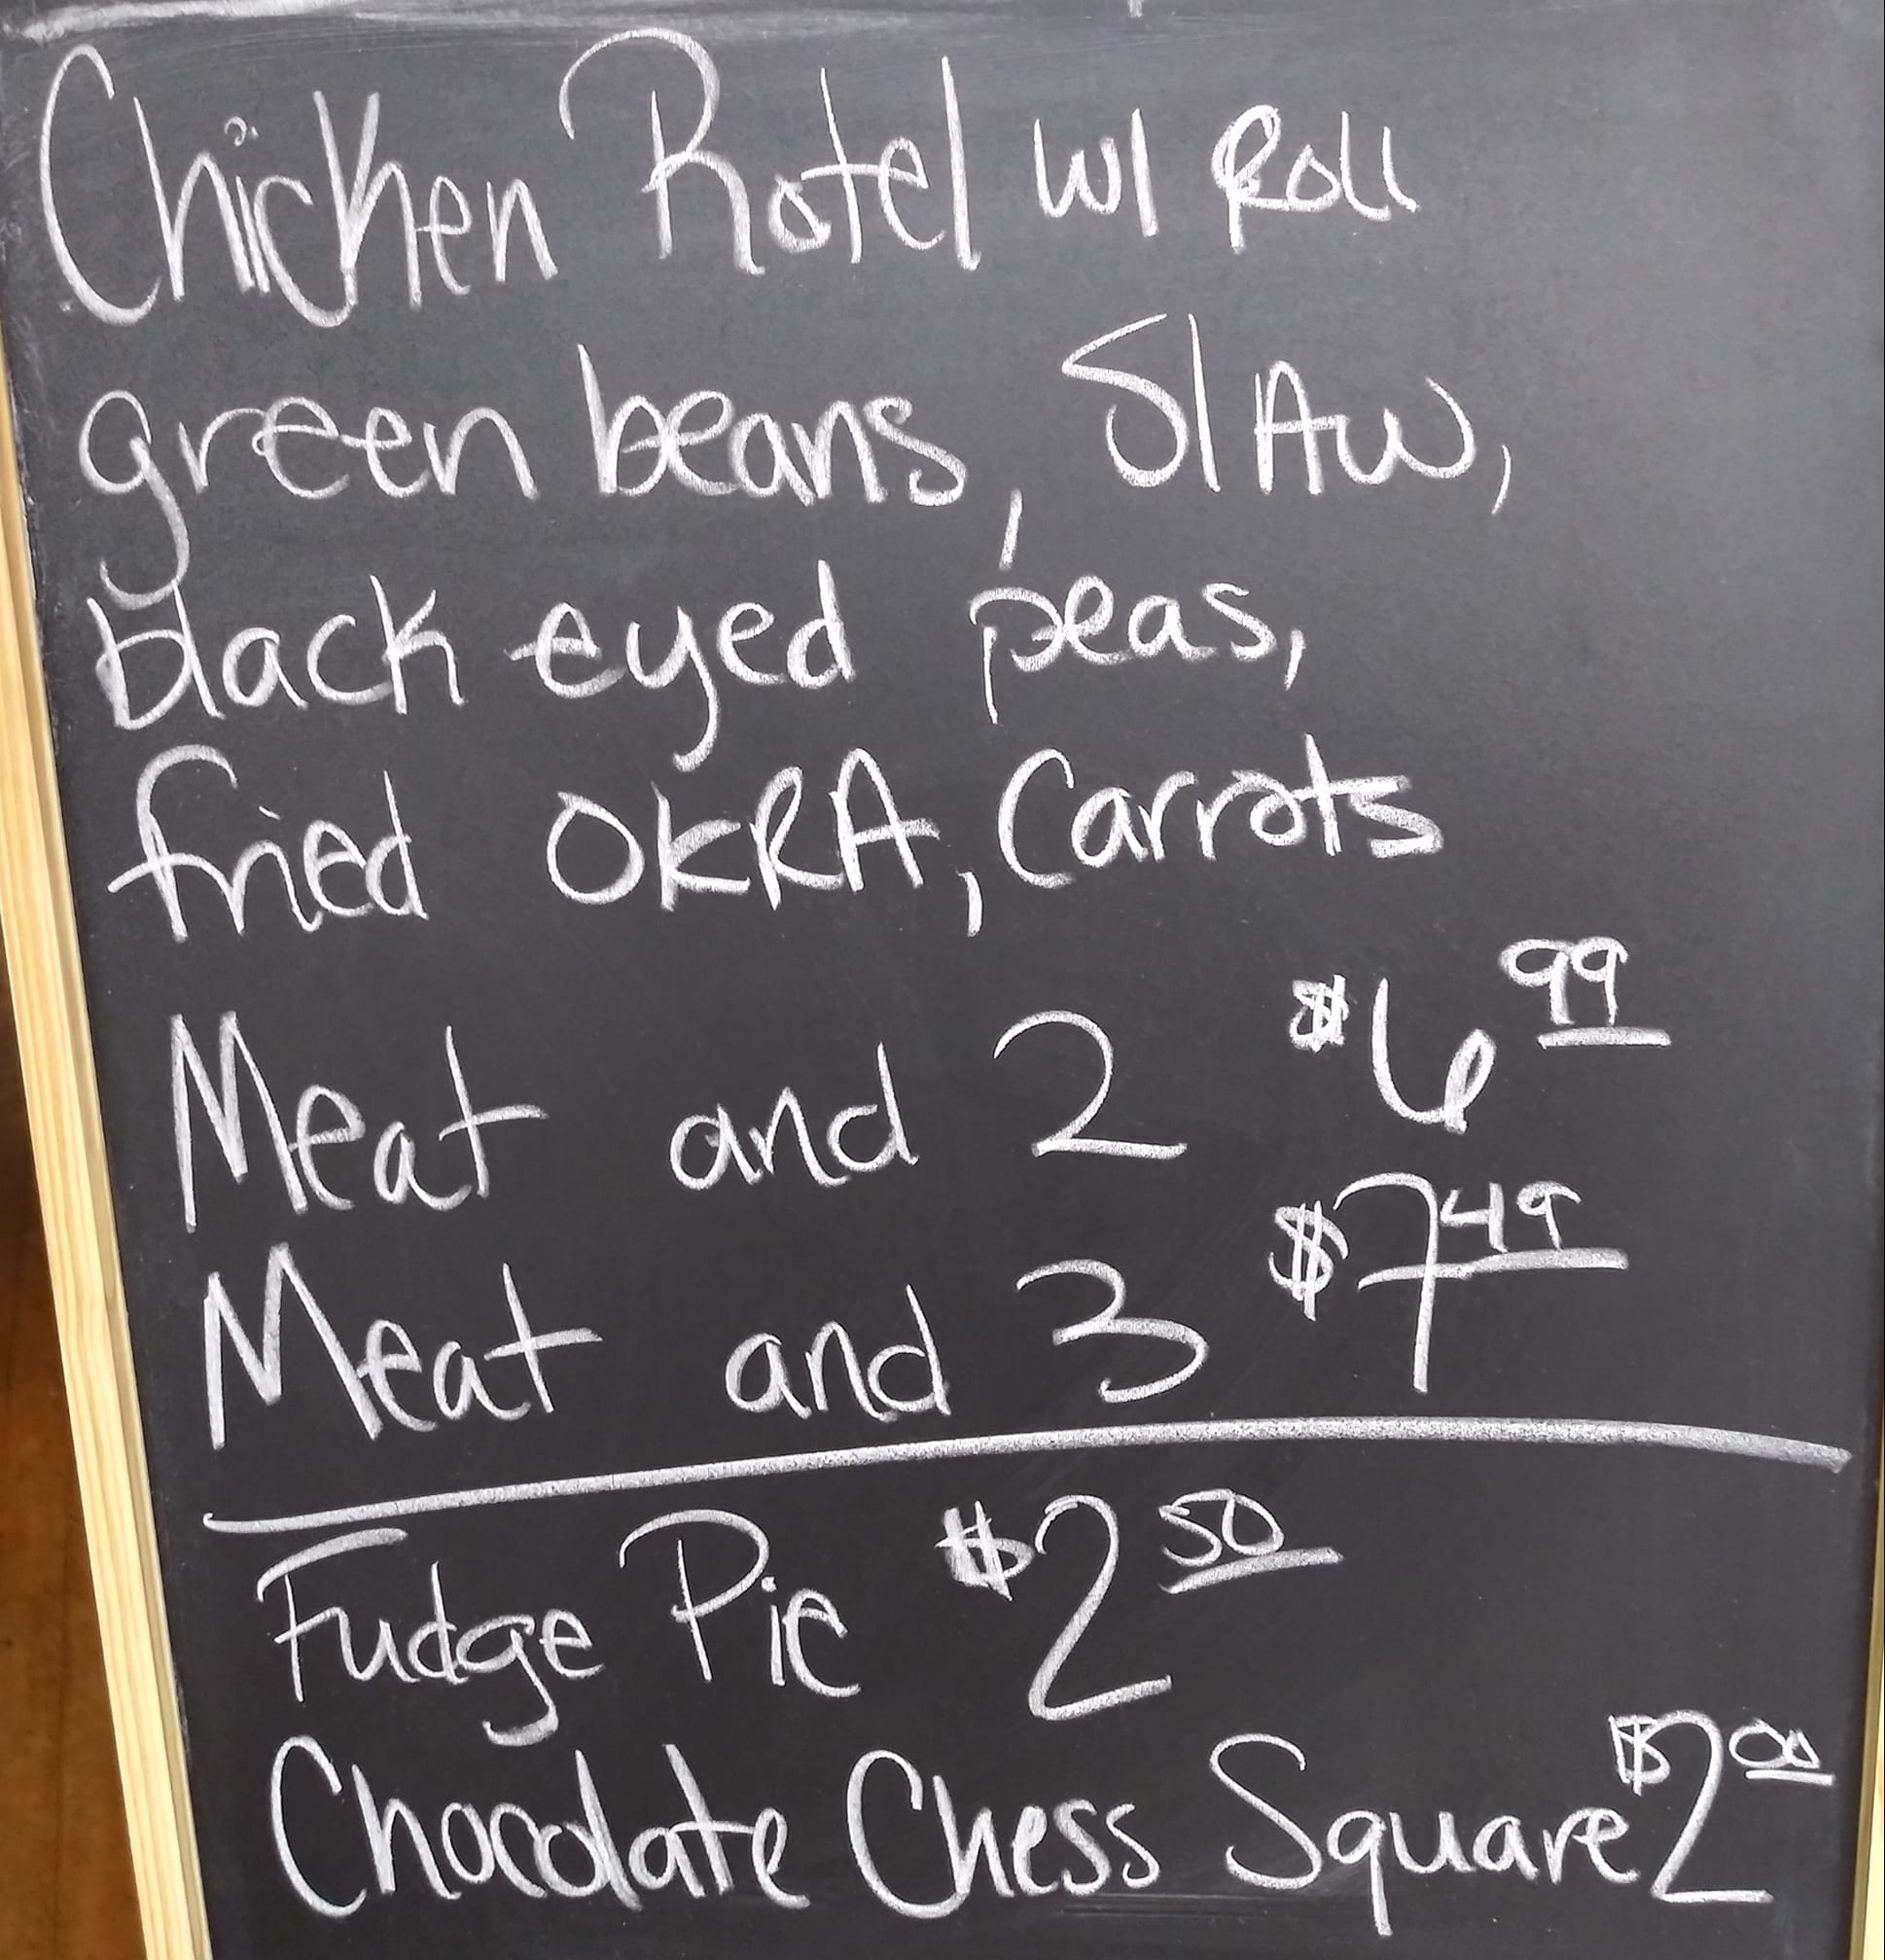 Chicken Rotel w/ Roll
green beans, SlAw,
black eyed peas,
fried OKRA, Carrots
Meat and 2 $6 99
Meat and 3 $7 49
Fudge Pie $2 50
Chocolate Chess Square $2 00